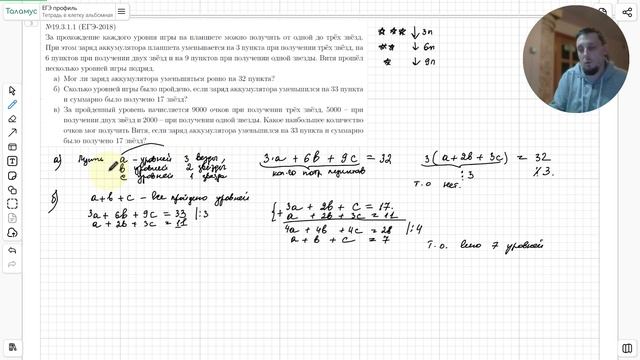 Таламус
ЕГЭ профиль
Тетрадь в клетку альбомная
№19.3.1.1 (ЕГЭ-2018)
За прохождение каждого уровня игры на планшете можно получить от одной до трёх звёзд.
При этом заряд аккумулятора планшета уменьшается на 3 пункта при получении трёх звёзд, на
6 пунктов при получении двух звёзд и на 9 пунктов при получении одной звезды. Витя прошёл
несколько уровней игры подряд.
а) Мог ли заряд аккумулятора уменьшиться ровно на 32 пункта?
б) Сколько уровней игры было пройдено, если заряд аккумулятора уменьшился на 33 пункта
и суммарно было получено 17 звёзд?
в) За пройденный уровень начисляется 9000 очков при получении трёх звёзд, 5000 – при
получении двух звёзд и 2000 – при получении одной звезды. Какое наибольшее количество
очков мог получить Витя, если заряд аккумулятора уменьшился на 33 пункта и суммарно
было получено 17 звёзд?
3п
6п
9п
а) Пусть a - уровней 3 звезды,
b уровней 2 звезды
c уровней 1 звезда
3·a + 6b + 9c = 32
кол-во потр. пунктов
3(a + 2b + 3c) = 32
⋮3
⋮̸3.
т.о нет.
б) a + b + c - все пройдено уровней
3a + 6b + 9c = 33 |:3
a + 2b + 3c = 11
+ 3a + 2b + c = 17.
a + 2b + 3c = 11
4a + 4b + 4c = 28 |:4
a + b + c = 7
Т.о. было 7 уровней